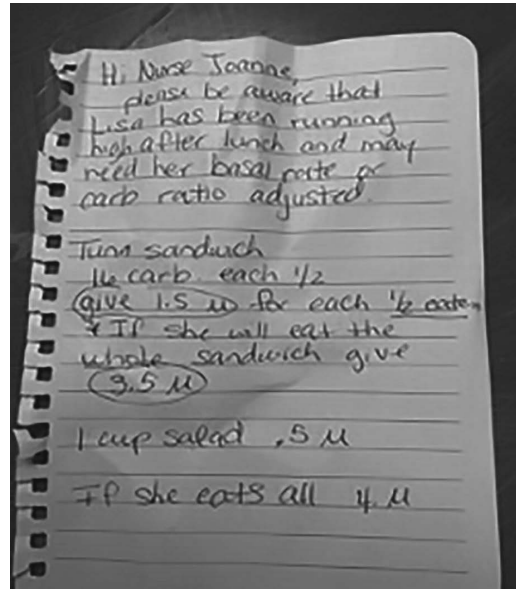 Hi Nurse Joanne,
please be aware that
Lisa has been running
high after lunch and may
need her basal rate or
carb ratio adjusted.
Tuna sandwich
16 carb each 1/2
give 1.5 u for each 1/2 eaten
* If she will eat the
whole sandwich give
3.5 u
1 cup salad .5 u
If she eats all 4 u